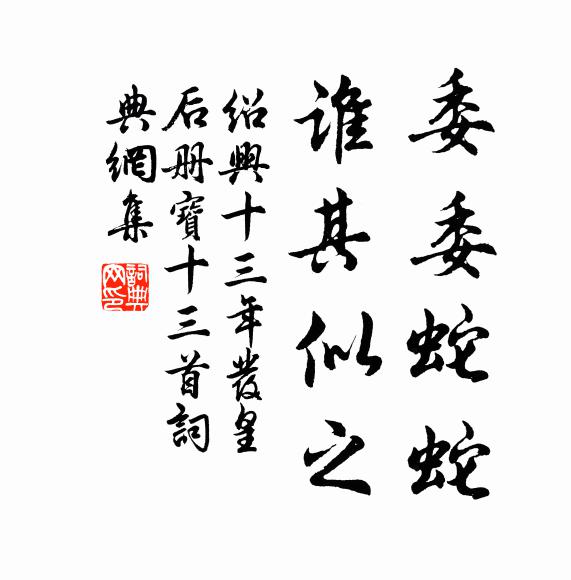 委委蛇蛇
谁其似之
绍興十三年發皇
后册寶十三首詞
典網集
詞典网印